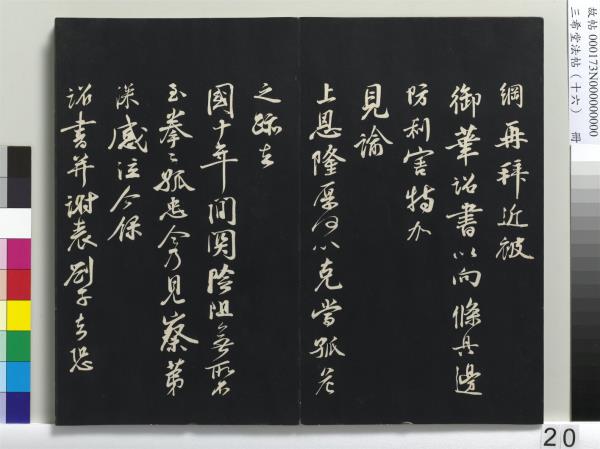 綱再拜近被
御筆詔書以向條具邊
防利害特加
見諭
上恩隆厚何以克當孤危
之跡去
國十年間關險阻無所不
至拳拳孤忠今乃見察第
深感泣今錄
詔書并謝表劄子去恐
故帖 000173N000000000
三希堂法帖（十六） 冊
20